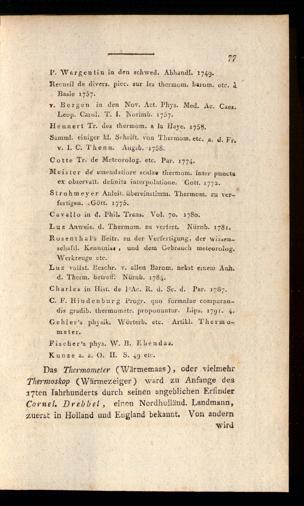 77
P. Wargentin in den schwed. Abhandl. 1749.
Recueil de divers. piec. sur les thermom. barom. etc. à
Basle 1757.
v. Bergen in den Nov. Act. Phys. Med. Ac. Caes.
Leop. Carol. T. I. Norimb. 1757.
Hennert Tr. des thermom. a la Haye. 1758.
Samml. einiger kl. Schrift. von Thermom. etc. a. d. Fr.
v. I. C. Thenn. Augsb. 1758.
Cotte Tr. de Meteorolog. etc. Par. 1774.
Meister de emendatiore scalae thermom. inter puncta
ex observatt. definita interpolatione. Gott. 1772.
Strohmeyer Anleit. übereinstimm. Thermom. zu ver-
fertigen. Gött. 1775.
Cavallo in d. Phil. Trans. Vol. 70. 1780.
Luz Anweis. d. Thermom. zu verfert. Nürnb. 1781.
Rosenthal's Beitr. zu der Verfertigung, der wissen-
schaftl. Kenntniss, und dem Gebrauch meteorolog.
Werkzeuge etc.
Luz vollst. Beschr. v. allen Barom. nebst einem Anh.
d. Therm. betreff. Nürnb. 1784.
Charles in Hist. de l'Ac. R. d. Sc. d. Par. 1787.
C. F. Hindenburg Progr. quo formulae comparan-
dis gradib. thermometr. proponuntur. Lips. 1791. 4.
Gehler's physik. Wörterb. etc. Artikl. Thermo-
meter.
Fischer's phys. W. B. Ebendas.
Kunze a. a. O. II. S. 49 etc.
Das Thermometer (Wärmemaas), oder vielmehr
Thermoskop (Wärmezeiger) ward zu Anfange des
17ten Iahrhunderts durch seinen angeblichen Erfinder
Cornel. Drebbel, einen Nordholländ. Landmann,
zuerst in Holland und England bekannt. Von andern
wird